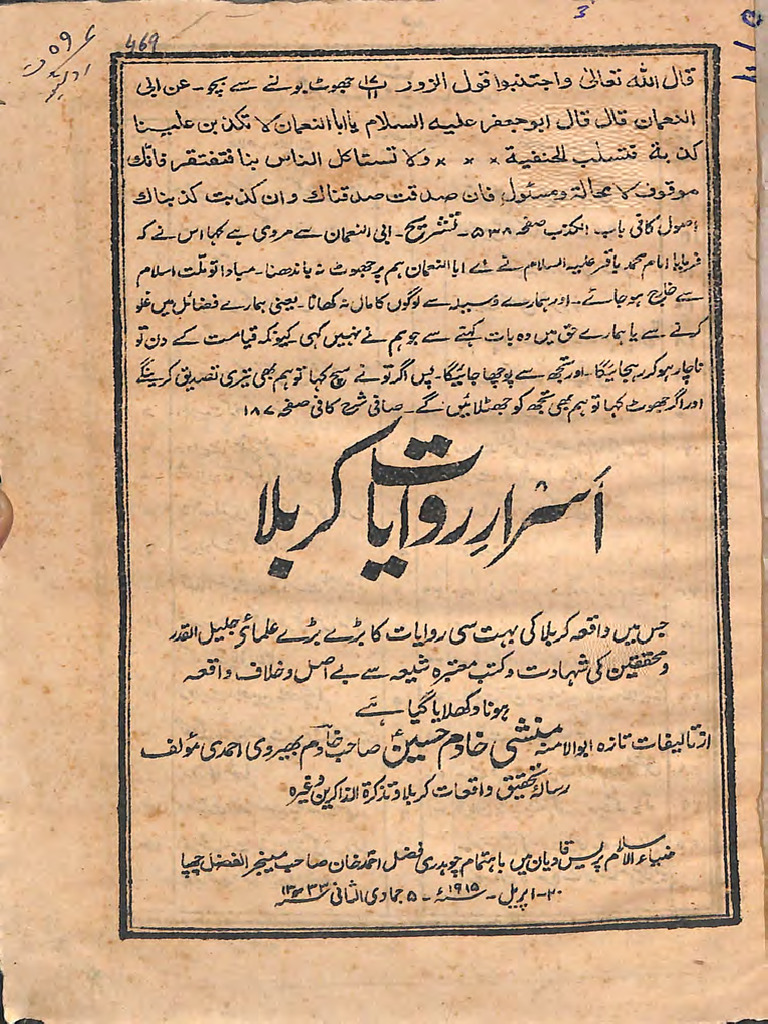 3
469
قال الله تعالیٰ واجتنبوا قول الزور پ ۱۷ ع ۱۱ جھوٹ بولنے سے بچو ۔ عن ابی
النعمان قال قال ابو جعفر علیہ السلام یا ابا النعمان لا تکذبن علینا
کذبة فتسلب الحنفیة × × × ولا تستاکل الناس بنا فتفتقر فانک
موقوف لا محالة ومسئول، فان صدقت صدقناك وان کذبت کذبناك
اصول کافی باب الکذب صفحہ ۵۳۸ ۔ تشریح ۔ ابی النعمان سے مروی ہے کہا اس نے کہ
فرمایا امام محمد باقر علیہ السلام نے اے ابا النعمان ہم پر جھوٹ نہ باندھنا ۔ مبادا تو ملت اسلام
سے خارج ہو جائے ۔ اور ہمارے وسیلہ سے لوگوں کا مال نہ کھانا ۔ یعنی ہمارے فضائل میں غلو
کرنے سے یا ہمارے حق میں وہ بات کہنے سے جو ہم نے نہیں کہی کیونکہ قیامت کے دن تو
ناچار ہو کر رہجائیگا ۔ اور تجھ سے پوچھا جائیگا ۔ پس اگر تو نے سچ کہا تو ہم بھی تیری تصدیق کرینگے
اور اگر جھوٹ کہا تو ہم بھی تجھ کو جھٹلائیں گے ۔ صافی شرح کافی صفحہ ۱۸۷
اسرارِ روایات کربلا
جس میں واقعہ کربلا کی بہت سی روایات کا بڑے بڑے علمائے جلیل القدر
و محققین کی شہادت و کتب معتبرہ شیعہ سے بے اصل و خلاف واقعہ
ہونا دکھلایا گیا ہے
از تالیفات تازہ ابوالامنہ منشی خادم حسین صاحب خادم بھیروی احمدی مؤلف
رسالۂ تحقیق واقعات کربلا و تذکرۃ الذاکرین وغیرہ
ضیاء الاسلام پریس قادیان میں باہتمام چوہدری فضل احمد خان صاحب مینجر الفضل چھپا
۲۰ ۔ اپریل ۔ ۱۹۱۵ء ۔ ۵ جمادی الثانی ۱۳۳۳ھ